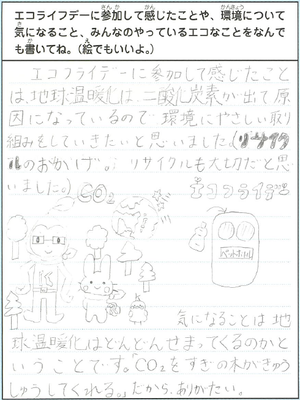 エコライフデーに参加して感じたことや、環境について
気になること、みんなのやっているエコなことをなんで
も書いてね。(絵でもいいよ。)
エコフライデーに参加して感じたこと
は、地球温暖化は、二酸化炭素が出て原
因になっているので環境にやさしい取り
組みをしていきたいと思いました。(リサイク
ルのおかげ。) リサイクルも大切だと思
いました。
CO2
エコフライデー
K
ペットボトル
気になることは地
球温暖化はどんどんせまってくるのかと
いうことです。「CO2をすぎの木がきゅう
しゅうしてくれる。」だから、ありがたい。